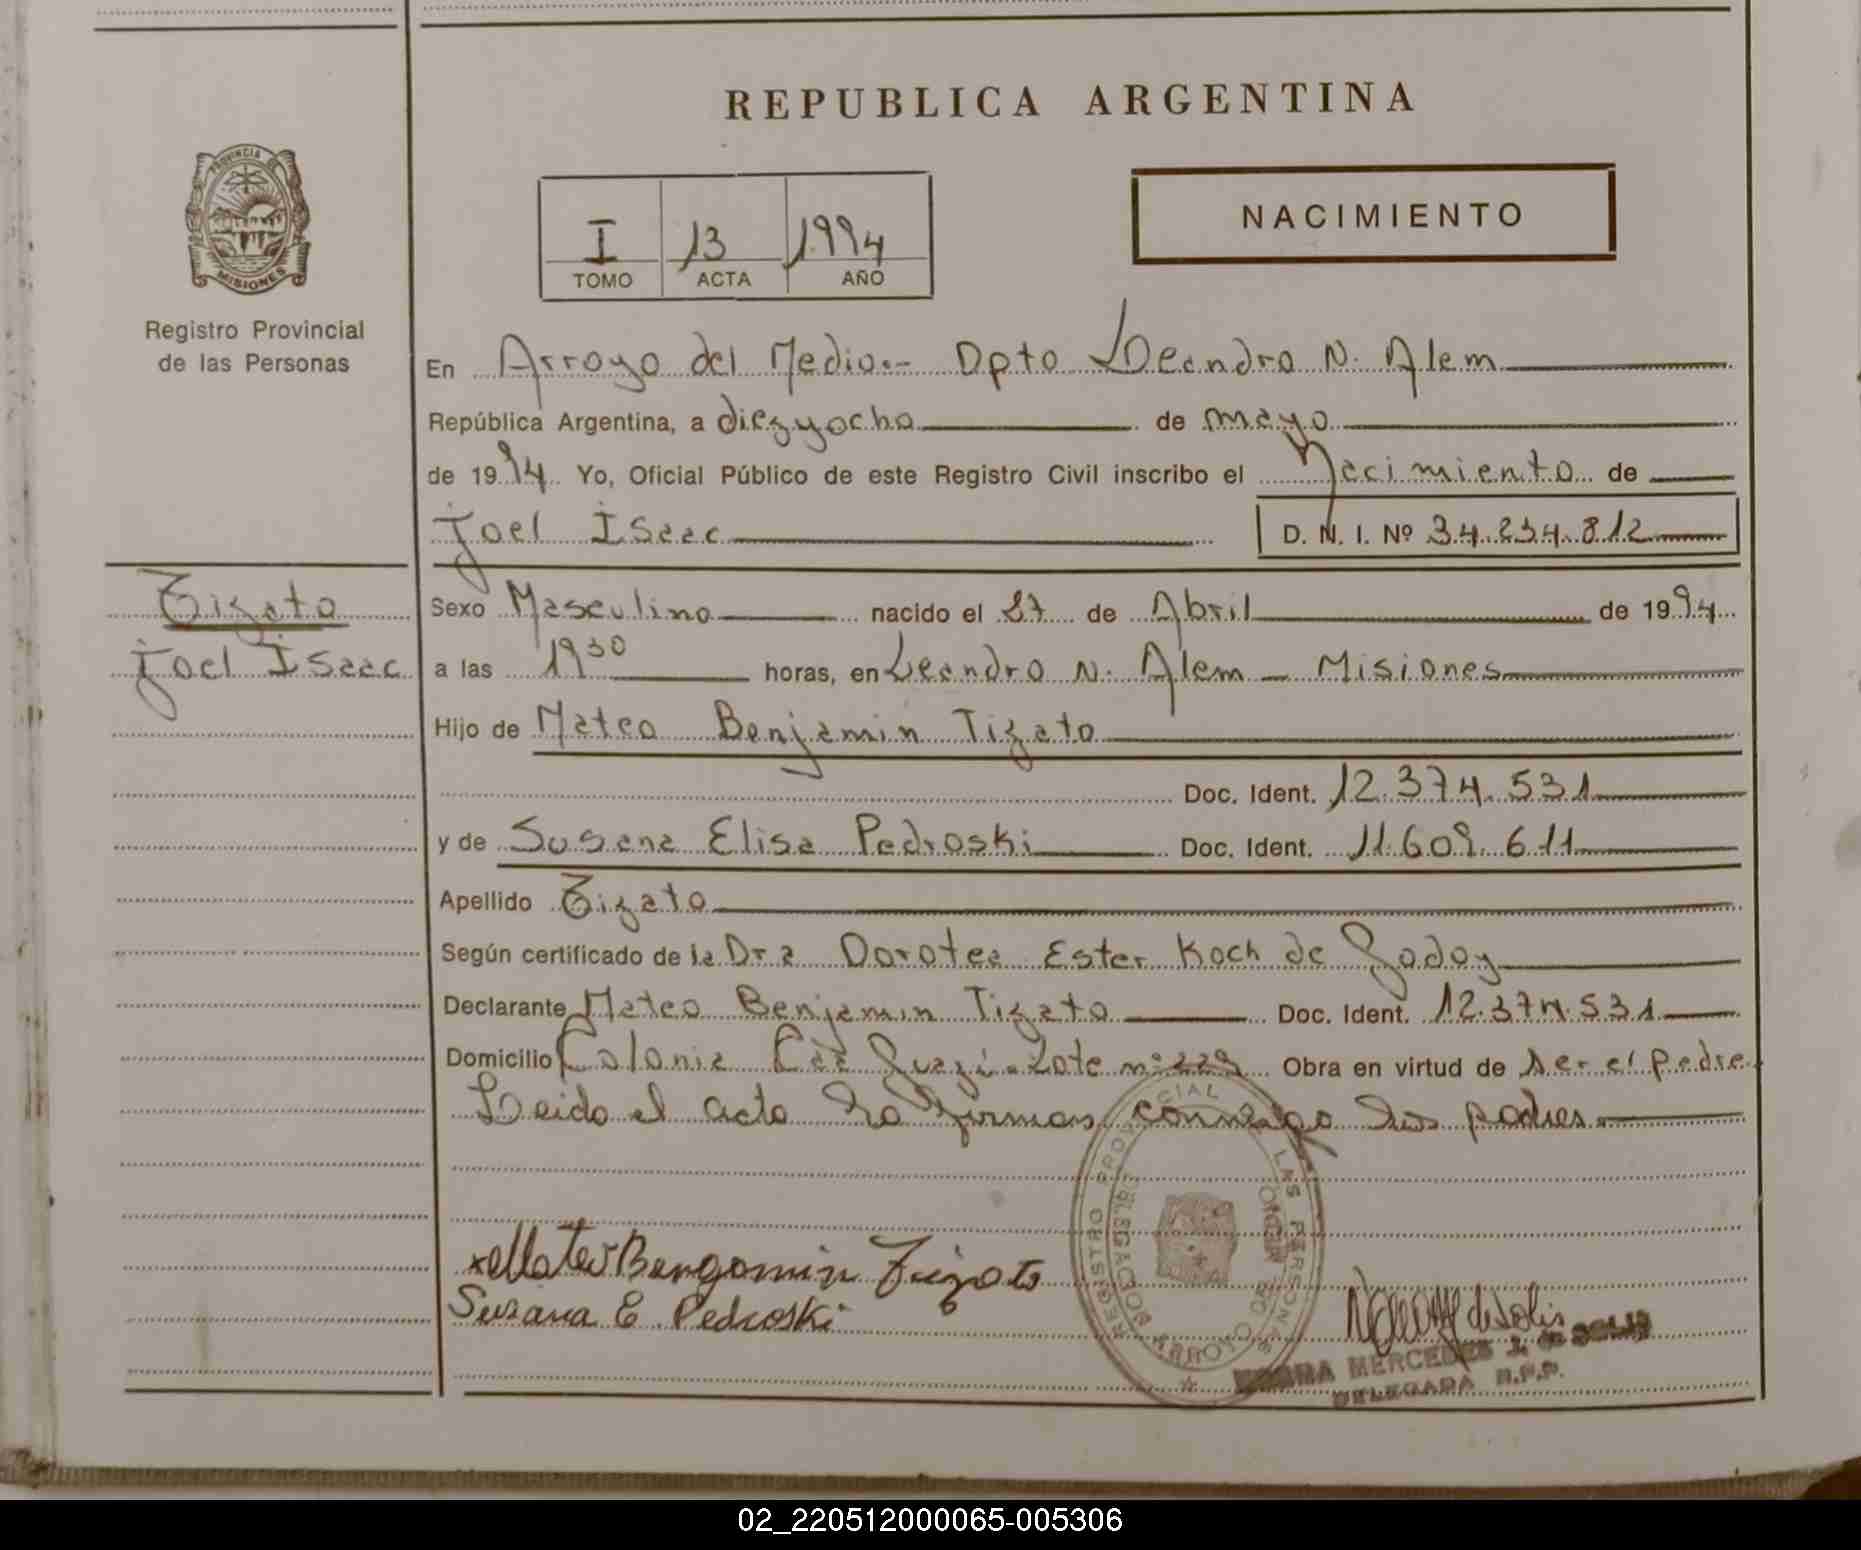 REPUBLICA ARGENTINA
PROVINCIA DE
MISIONES
Registro Provincial
de las Personas
I 13 1994
TOMO ACTA AÑO
NACIMIENTO
En Arroyo del Medio.- Dpto Leandro N. Alem
República Argentina, a diezyocho de mayo
de 1994 Yo, Oficial Público de este Registro Civil inscribo el Nacimiento de
Joel Isaac D. N. I. Nº 34.234.812
Tizato
Joel Isaac
Sexo Masculino nacido el 27 de Abril de 1994
a las 19 30 horas, en Leandro N. Alem - Misiones
Hijo de Mateo Benjamin Tizato
Doc. Ident. 12.374.531
y de Susana Elisa Pedroski Doc. Ident. 11.609.611
Apellido Tizato
Según certificado de la Dra Dorotea Ester Koch de Godoy
Declarante Mateo Benjamin Tizato Doc. Ident. 12.374.531
Domicilio Colonia Caá Guazú - Lote nº 229 Obra en virtud de ser el padre
Leido el acta la firman conmigo sus padres
Mateo Benjamin Tizato
Susana E. Pedroski
REGISTRO PROVINCIAL LAS PERSONAS
DELEGACION ARROYO DEL MEDIO
NORMA MERCEDES de SOLIS
DELEGADA R.P.P.
02_220512000065-005306